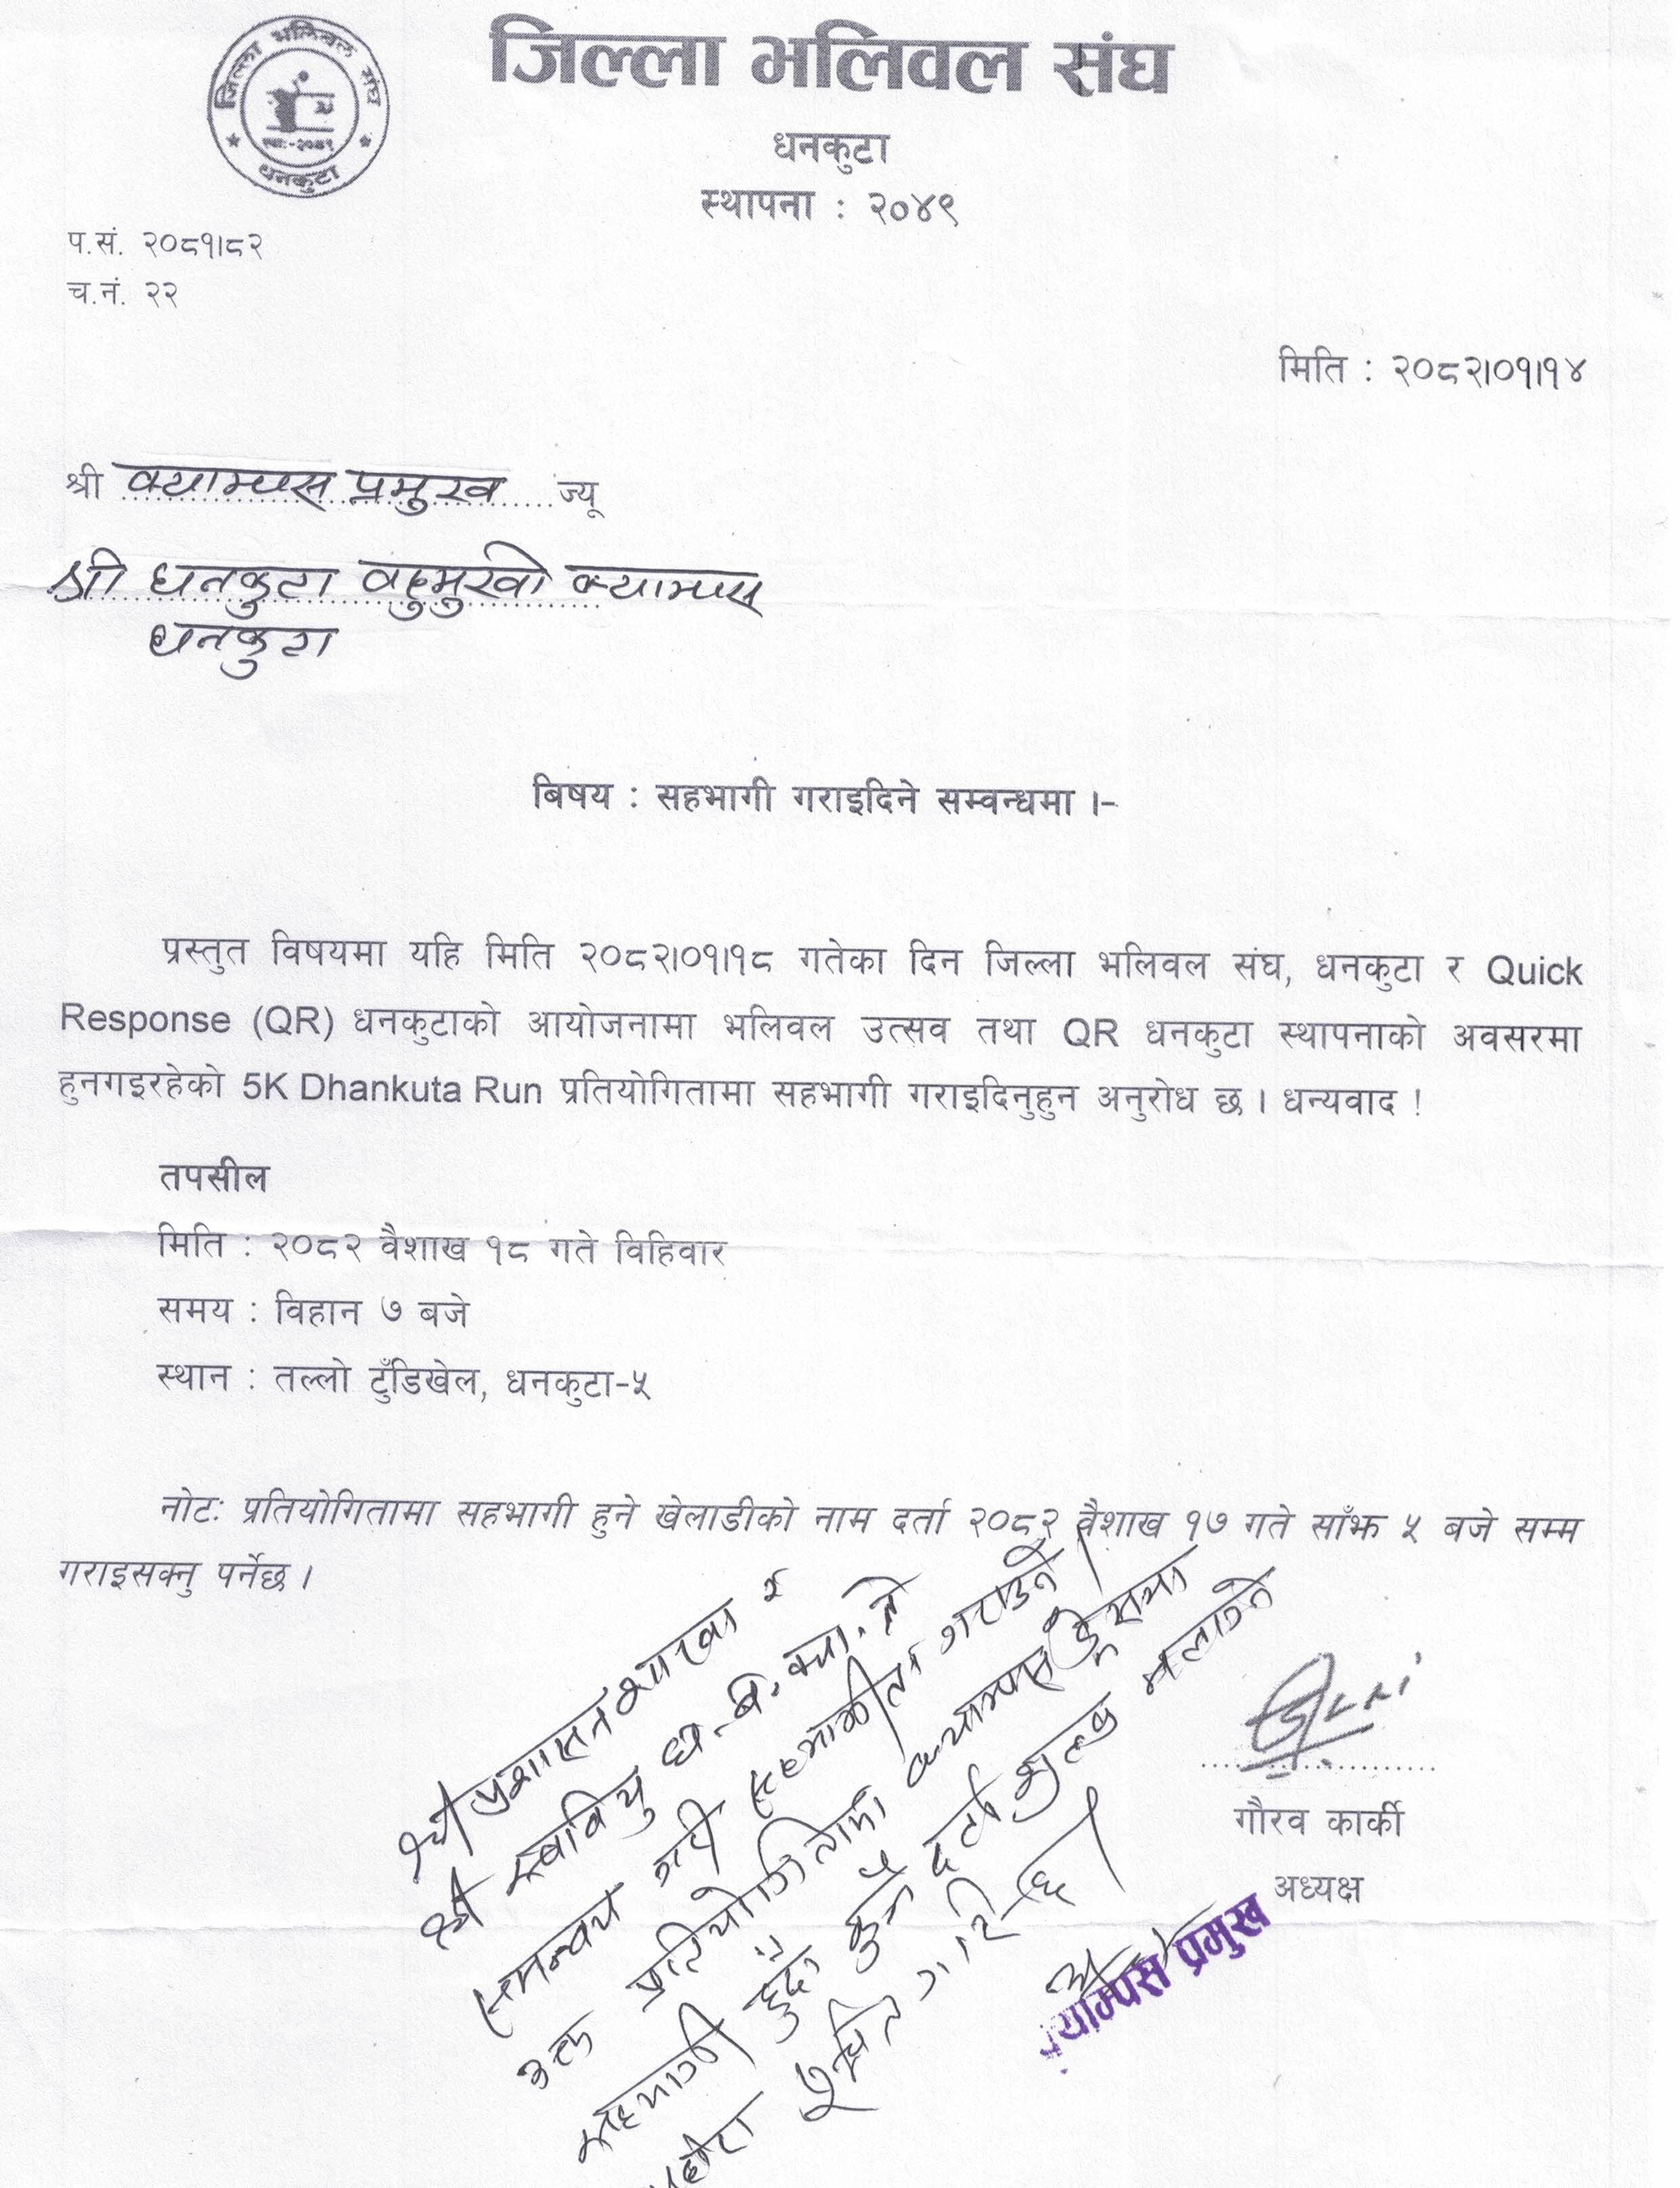 जिल्ला भलिबल संघ
स्था:-२०४९
धनकुटा
जिल्ला भलिवल संघ
धनकुटा
स्थापना : २०४९
प.सं. २०८१।८२
च.नं. २२
मिति : २०८२।०१।१४
श्री क्याम्पस प्रमुख ज्यू
श्री धनकुटा वहुमुखी क्याम्पस
धनकुटा
बिषय : सहभागी गराइदिने सम्वन्धमा ।-
प्रस्तुत विषयमा यहि मिति २०८२।०१।१८ गतेका दिन जिल्ला भलिवल संघ, धनकुटा र Quick
Response (QR) धनकुटाको आयोजनामा भलिवल उत्सव तथा QR धनकुटा स्थापनाको अवसरमा
हुनगइरहेको 5K Dhankuta Run प्रतियोगितामा सहभागी गराइदिनुहुन अनुरोध छ । धन्यवाद !
तपसील
मिति : २०८२ वैशाख १८ गते विहिवार
समय : विहान ७ बजे
स्थान : तल्लो टुँडिखेल, धनकुटा-५
नोटः प्रतियोगितामा सहभागी हुने खेलाडीको नाम दर्ता २०८२ वैशाख १७ गते साँझ ५ बजे सम्म
गराइसक्नु पर्नेछ ।
श्री प्रशासन शाखा र
श्री स्ववियु ध.ब.क्या. ले
समन्वय गरी सहभागीता गराउने ।
उक्त प्रतियोगितामा क्याम्पस ड्रेसमा
सहभागी हुँदा कुनै दर्ता शुल्क नलाग्ने
गरिन्छ ।
गौरव कार्की
अध्यक्ष
क्याम्पस प्रमुख